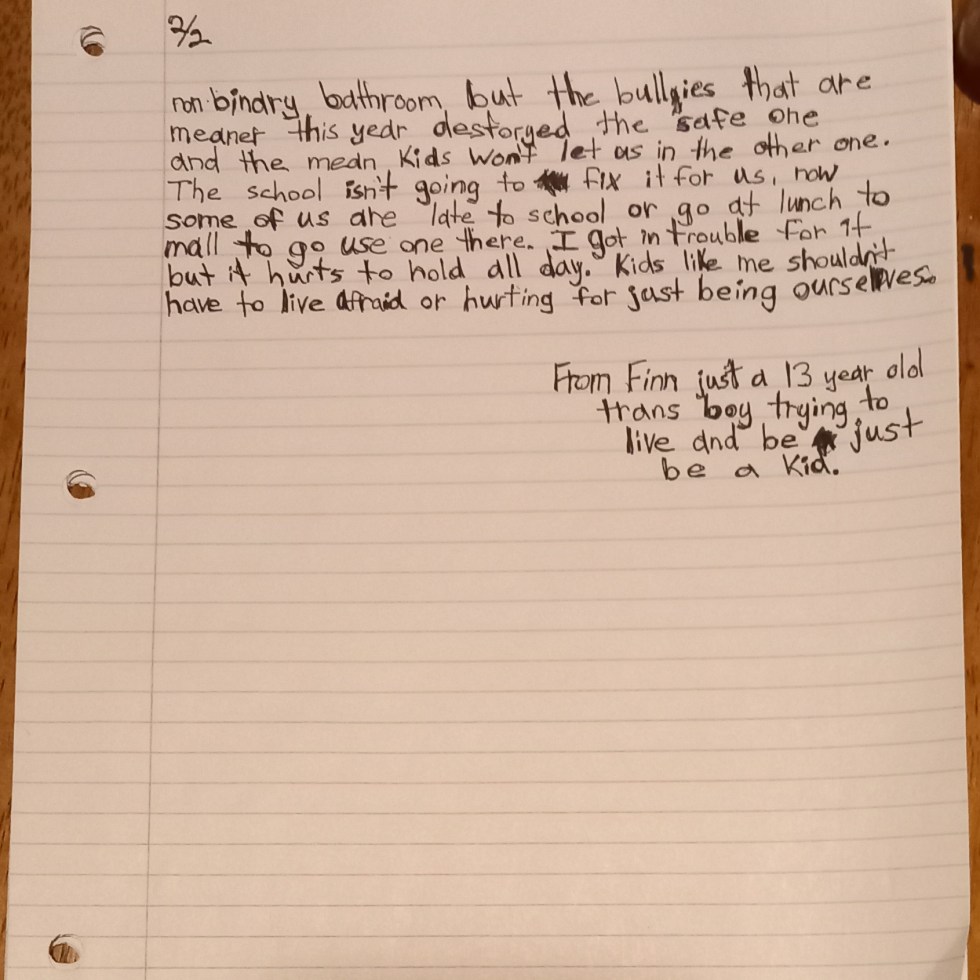 2/2
non-bindry bathroom, but the bullgies that are
meaner this year destorged the safe one
and the mean kids won't let us in the other one.
The school isn't going to fix it for us, now
some of us are late to school or go at lunch to
mall to go use one there. I got in trouble for it
but it hurts to hold all day. Kids like me shouldn't
have to live afraid or hurting for just being ourselves.
From Finn just a 13 year old
trans boy trying to
live and be just
be a kid.